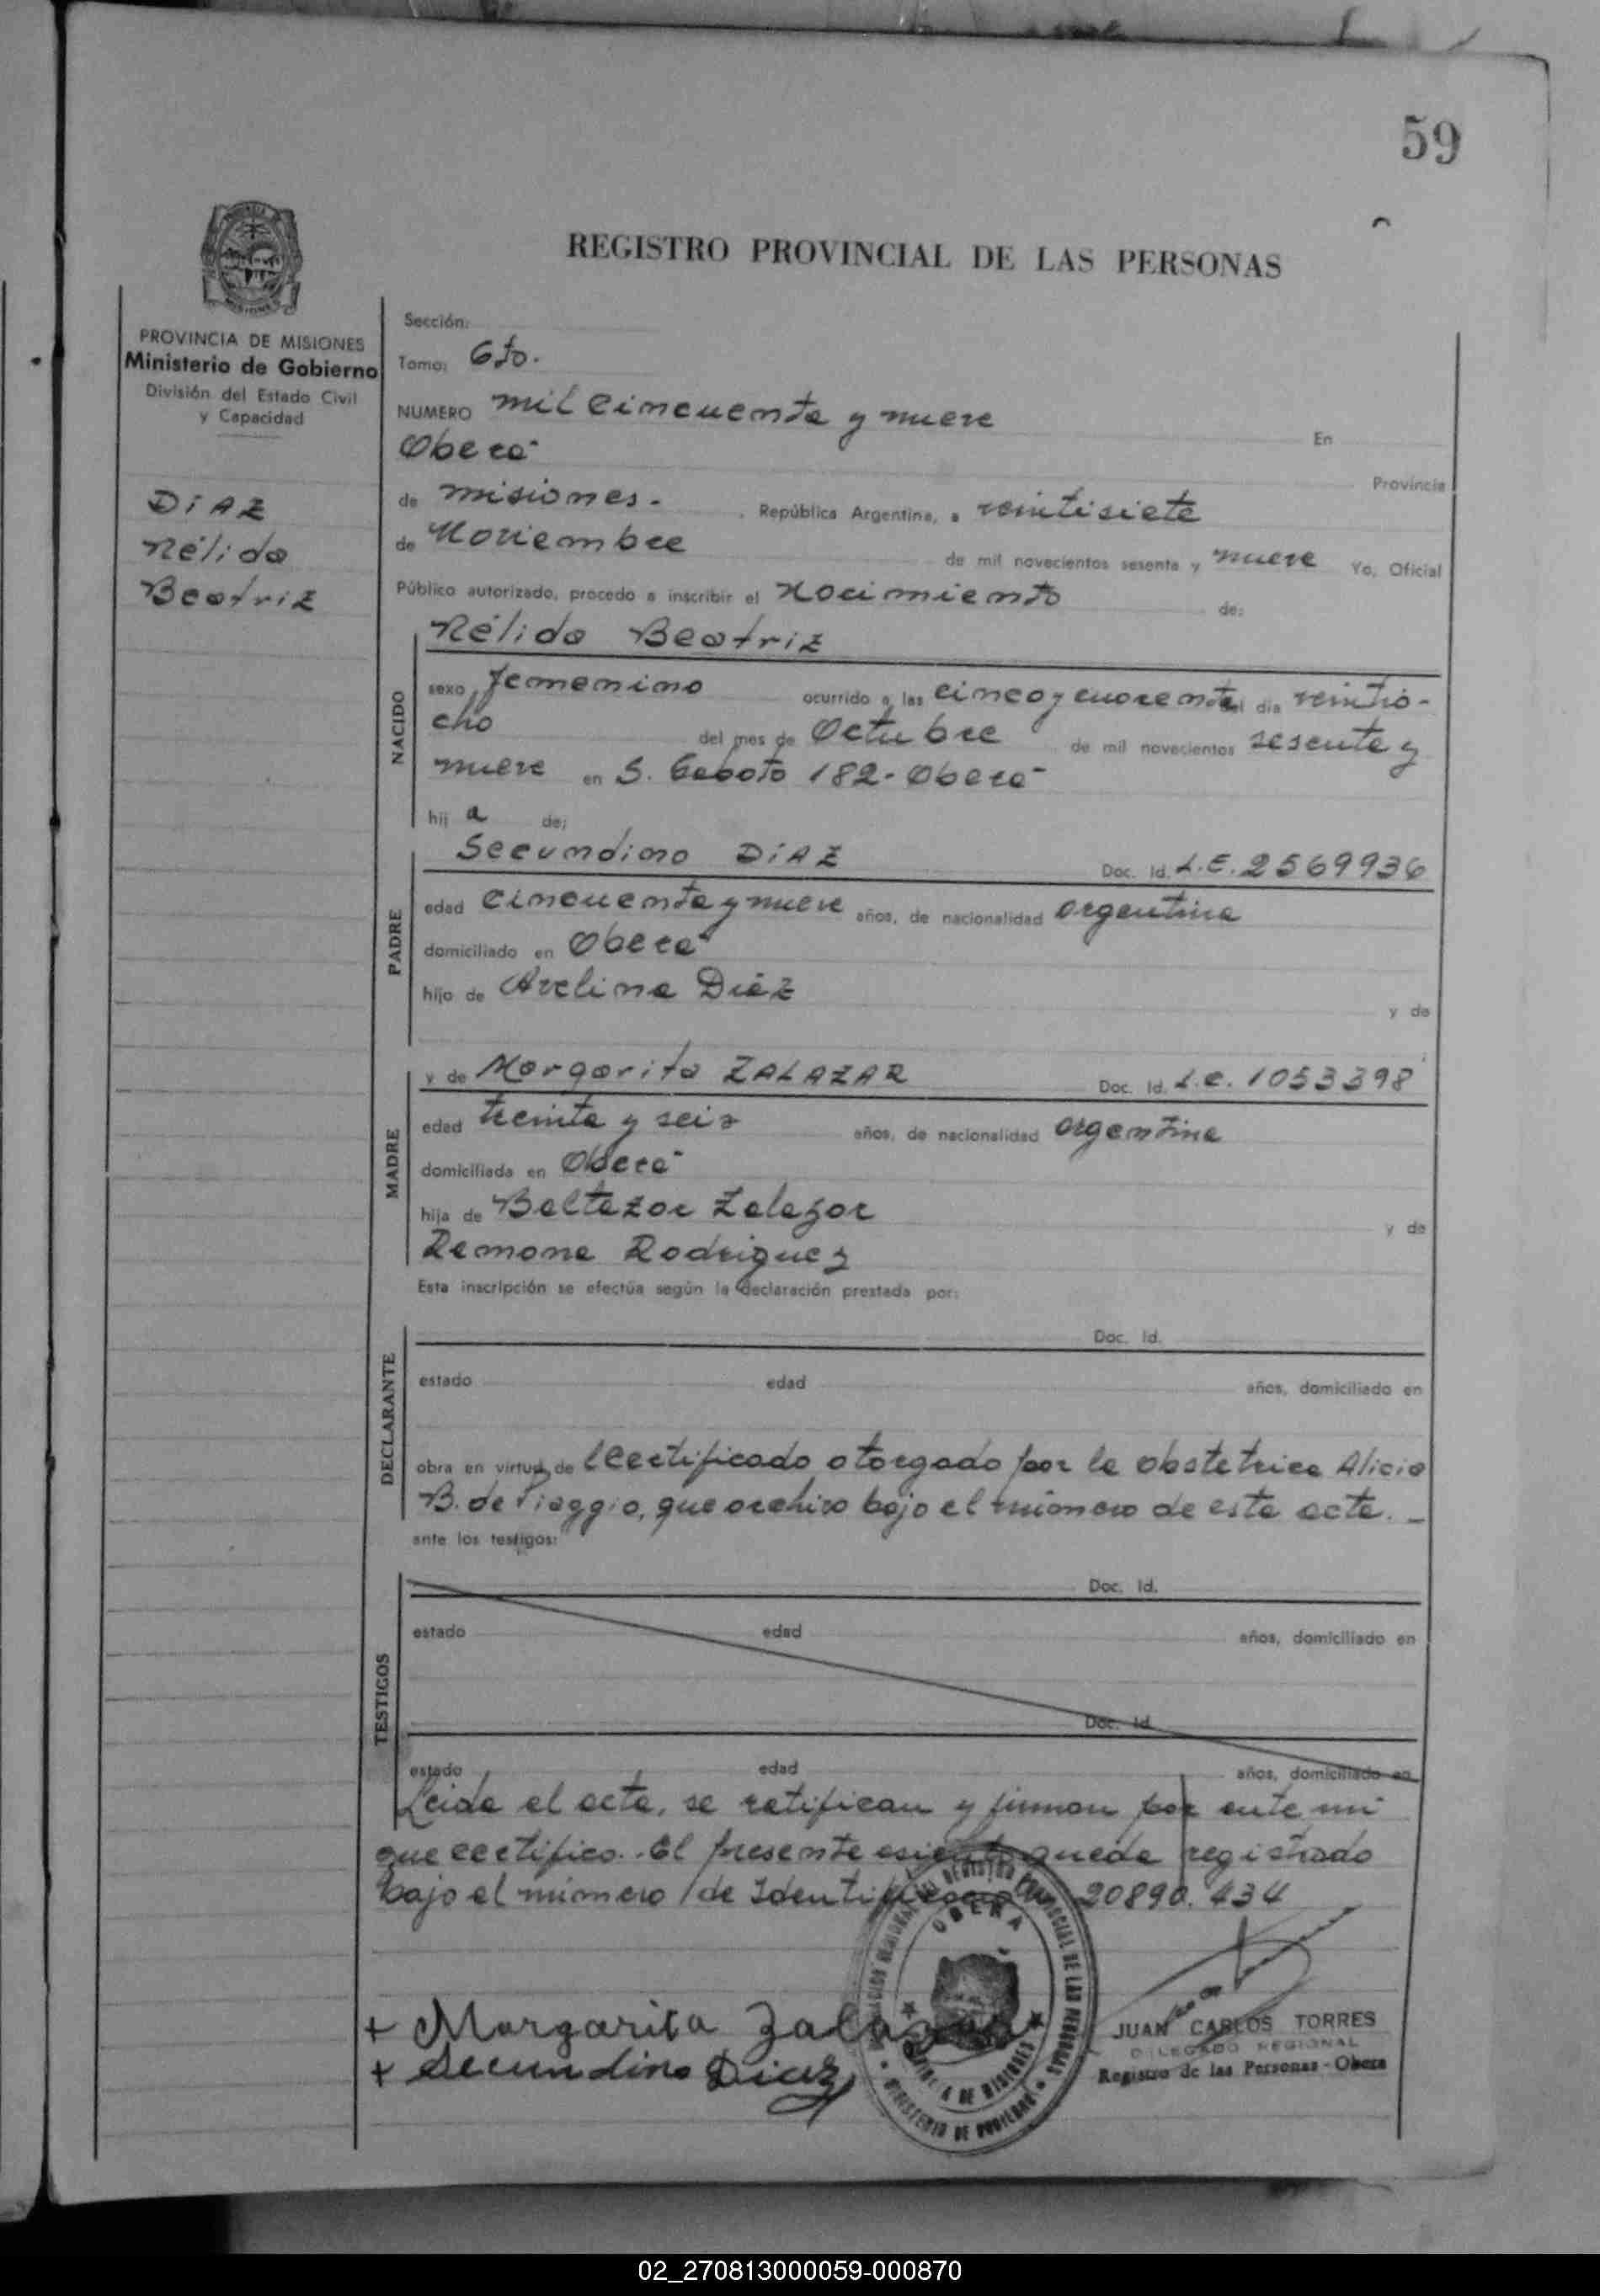 59
REGISTRO PROVINCIAL DE LAS PERSONAS
PROVINCIA DE MISIONES
Ministerio de Gobierno
División del Estado Civil
y Capacidad
DiAZ
Nélida
Beatriz
Sección:
Tomo: 6to.
NUMERO mil cincuenta y nueve En
Oberá Provincia
de misiones. , República Argentina, a veintisiete
de Noviembre de mil novecientos sesenta y nueve Yo, Oficial
Público autorizado, procedo a inscribir el Nacimiento de:
Nélida Beatriz
NACIDO
sexo femenino ocurrido a las cinco y cuarenta del día veintio-
cho del mes de Octubre de mil novecientos sesenta y
nueve en S. Gaboto 182-Oberá
hij a de:
Secundino DiAZ Doc. Id. L.E. 2569936
PADRE
edad cincuenta y nueve años, de nacionalidad argentina
domiciliado en Oberá
hijo de Avelina Diaz y de
y de Margarita ZALAZAR Doc. Id. L.C. 1053398
MADRE
edad treinta y seis años, de nacionalidad argentina
domiciliada en Oberá
hija de Baltazar Zalazar y de
Ramona Rodriguez
Esta inscripción se efectúa según la declaración prestada por:
Doc. Id.
DECLARANTE
estado edad años, domiciliado en
obra en virtud de certificado otorgado por la obstetrica Alicia
B. de Piaggio, que archivo bajo el número de esta acta. _
ante los testigos:
Doc. Id.
TESTIGOS
estado edad años, domiciliado en
Doc. Id.
estado edad años, domiciliado en
Leida el acta, se ratifican y firman por ante mi
que certifico. El presente asiento queda registrado
bajo el número de Identificación 20890.434
OBERÁ
+ Margarita Zalazar
+ Secundino Diaz
JUAN CARLOS TORRES
DELEGADO REGIONAL
Registro de las Personas - Obera
02_270813000059-000870